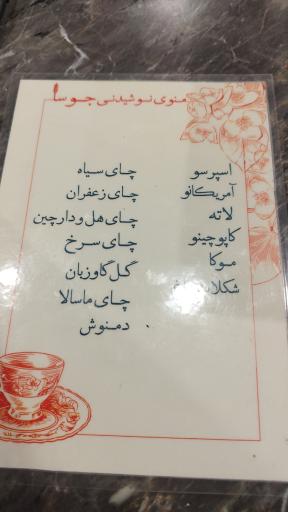 منوی نوشیدنی جوسا
اسپرسو
آمریکانو
لاته
کاپوچینو
موکا
شکلات
چای سیاه
چای زعفران
چای هل و دارچین
چای سرخ
گل گاو زبان
چای ماسالا
دمنوش